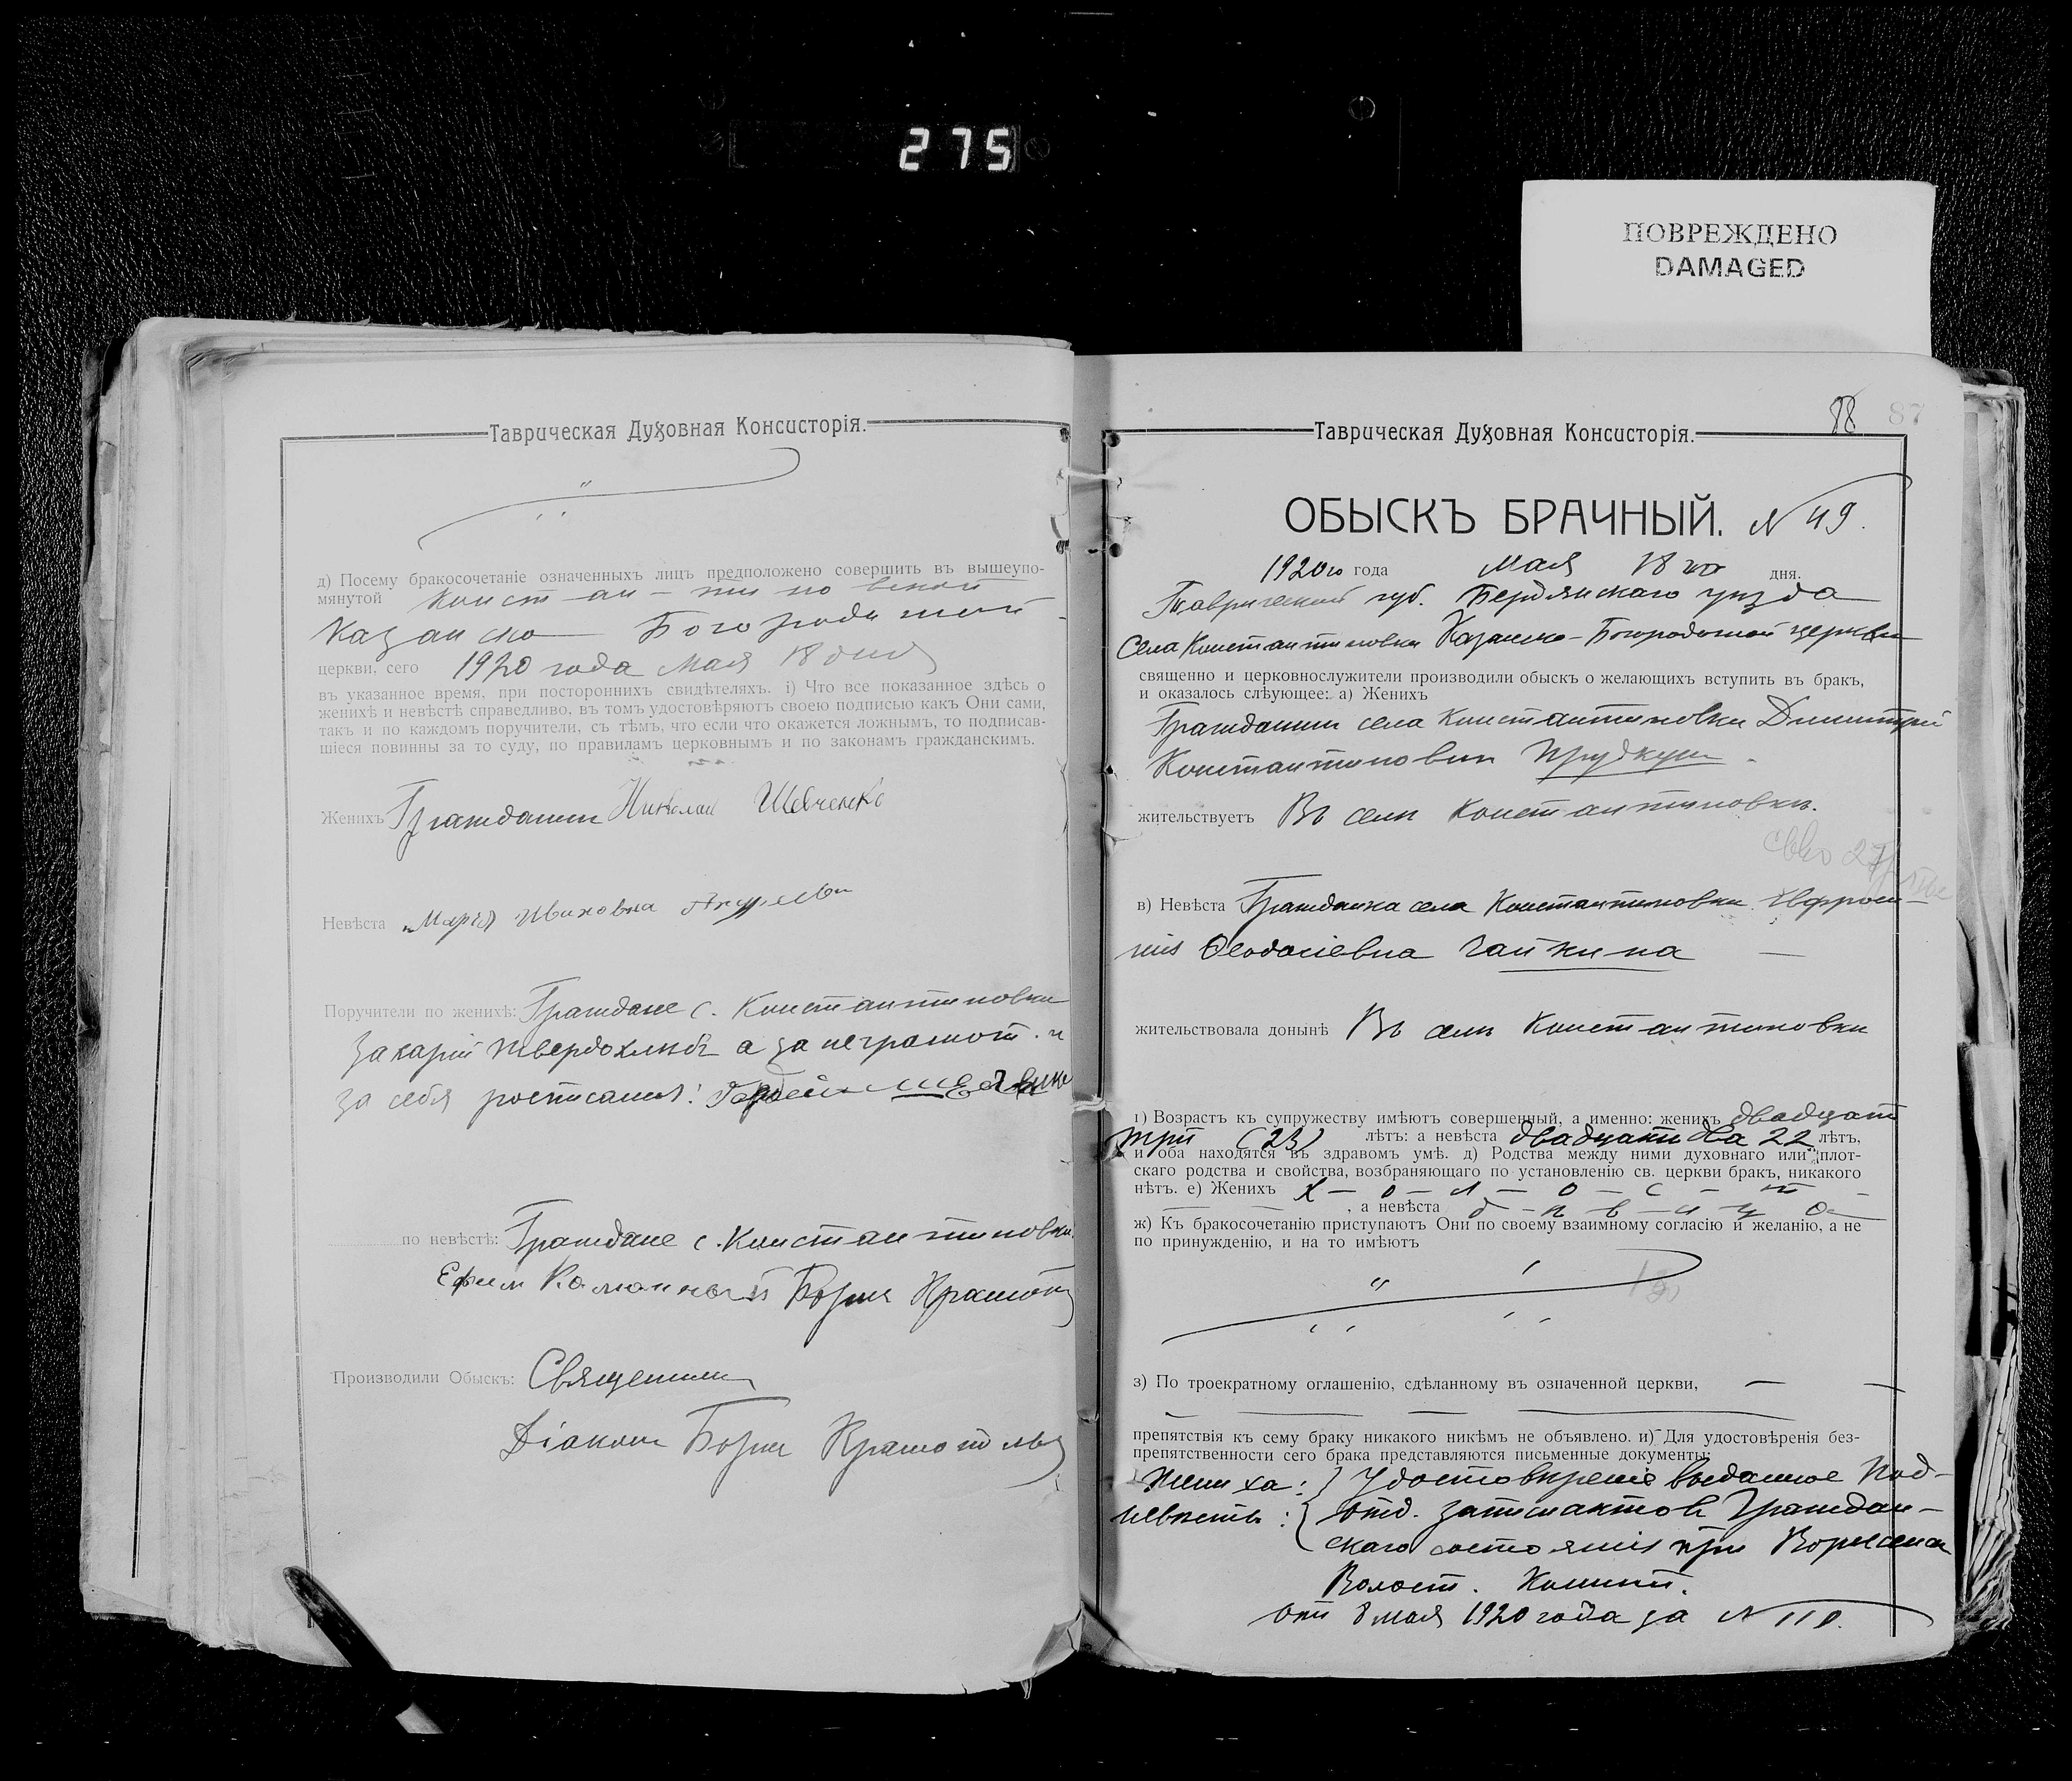 275
ПОВРЕЖДЕНО
DAMAGED
Таврическая Духовная Консисторія.
д) Посему бракосочетаніе означенныхъ лицъ предположено совершить въ вышеупо-
мянутой Конст-ан-ти но вской
Казанско Богородичной
церкви, сего 1920 года Мая 18 дня
въ указанное время, при постороннихъ свидѣтеляхъ. і) Что все показанное здѣсь о
женихѣ и невѣстѣ справедливо, въ томъ удостовѣряютъ своею подписью какъ Они сами,
такъ и по каждомъ поручители, съ тѣмъ, что если что окажется ложнымъ, то подписав-
шіеся повинны за то суду, по правиламъ церковнымъ и по законамъ гражданскимъ.
Женихъ Гражданин Николай Шевченко
Невѣста Марія Ивановна
Поручители по женихѣ: Граждане с. Константиновки
Захарій Твердохлѣбъ а за неграмот. и
за себя росписался: Гордѣй
по невѣстѣ: Граждане с. Константиновки
Ефим Борис
Производили Обыскъ: Священник
Діакон Борис
Таврическая Духовная Консисторія.
88 87
ОБЫСКЪ БРАЧНЫЙ. N 49.
1920го года Мая 18го дня.
Таврической губ. Бердянскаго уѣзда
Села Константиновки Казанско-Богородичной церкви
священно и церковнослужители производили обыскъ о желающихъ вступить въ бракъ,
и оказалось слѣующее: а) Женихъ
Гражданин села Константиновки Димитрій
Константинович Прудкун
жительствуетъ Въ селѣ Константиновкѣ.
в) Невѣста Гражданка села Константиновки Евфроси-
нія Ѳеодосіевна Чайкина
жительствовала донынѣ Въ селѣ Константиновкѣ
г) Возрастъ къ супружеству имѣютъ совершенный, а именно: женихъ двадцат
три (23) лѣтъ: а невѣста двадцати два 22 лѣтъ,
и оба находятся въ здравомъ умѣ. д) Родства между ними духовнаго или плот-
скаго родства и свойства, возбраняющаго по установленію св. церкви бракъ, никакого
нѣтъ. е) Женихъ х-о-л-о-с-т
, а невѣста д-ѣ-в-и-ц-а
ж) Къ бракосочетанію приступаютъ Они по своему взаимному согласію и желанію, а не
по принужденію, и на то имѣютъ
з) По троекратному оглашенію, сдѣланному въ означенной церкви,
препятствія къ сему браку никакого никѣмъ не объявлено. и) Для удостовѣренія без-
препятственности сего брака представляются письменные документы:
Жениха: } Удостовѣреніе выданное Под-
невѣсты: { отд. записи актов Граждан-
скаго состоянія при
Волост. Комит.
отъ 8 мая 1920 года за N 110.